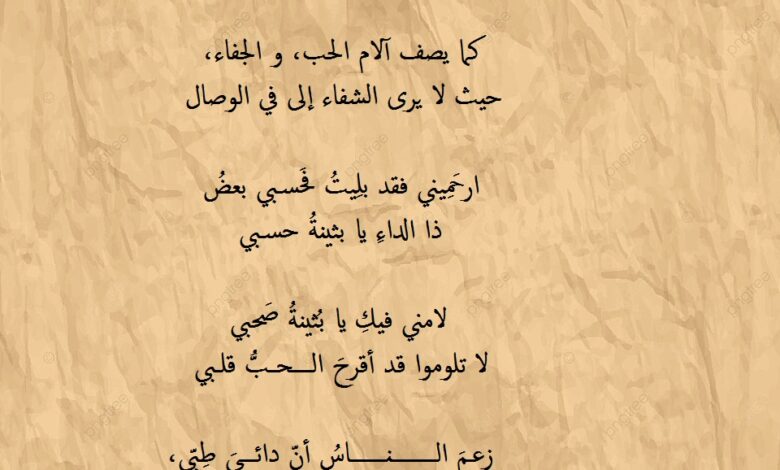 كما يصف آلام الحب، و الجفاء،
حيث لا يرى الشفاء إلى في الوصال
ارحَمِيني فقد بلِيتُ فَحَسبي بعضُ
ذا الداءِ يا بثينةُ حسبي
لامني فيكِ يا بُثينةُ صَحبي
لا تلوموا قد أقرحَ الـــحـبُّ قلبي
زعمَ الــــنــــاسُ أنّ دائــيَ طِبّي،